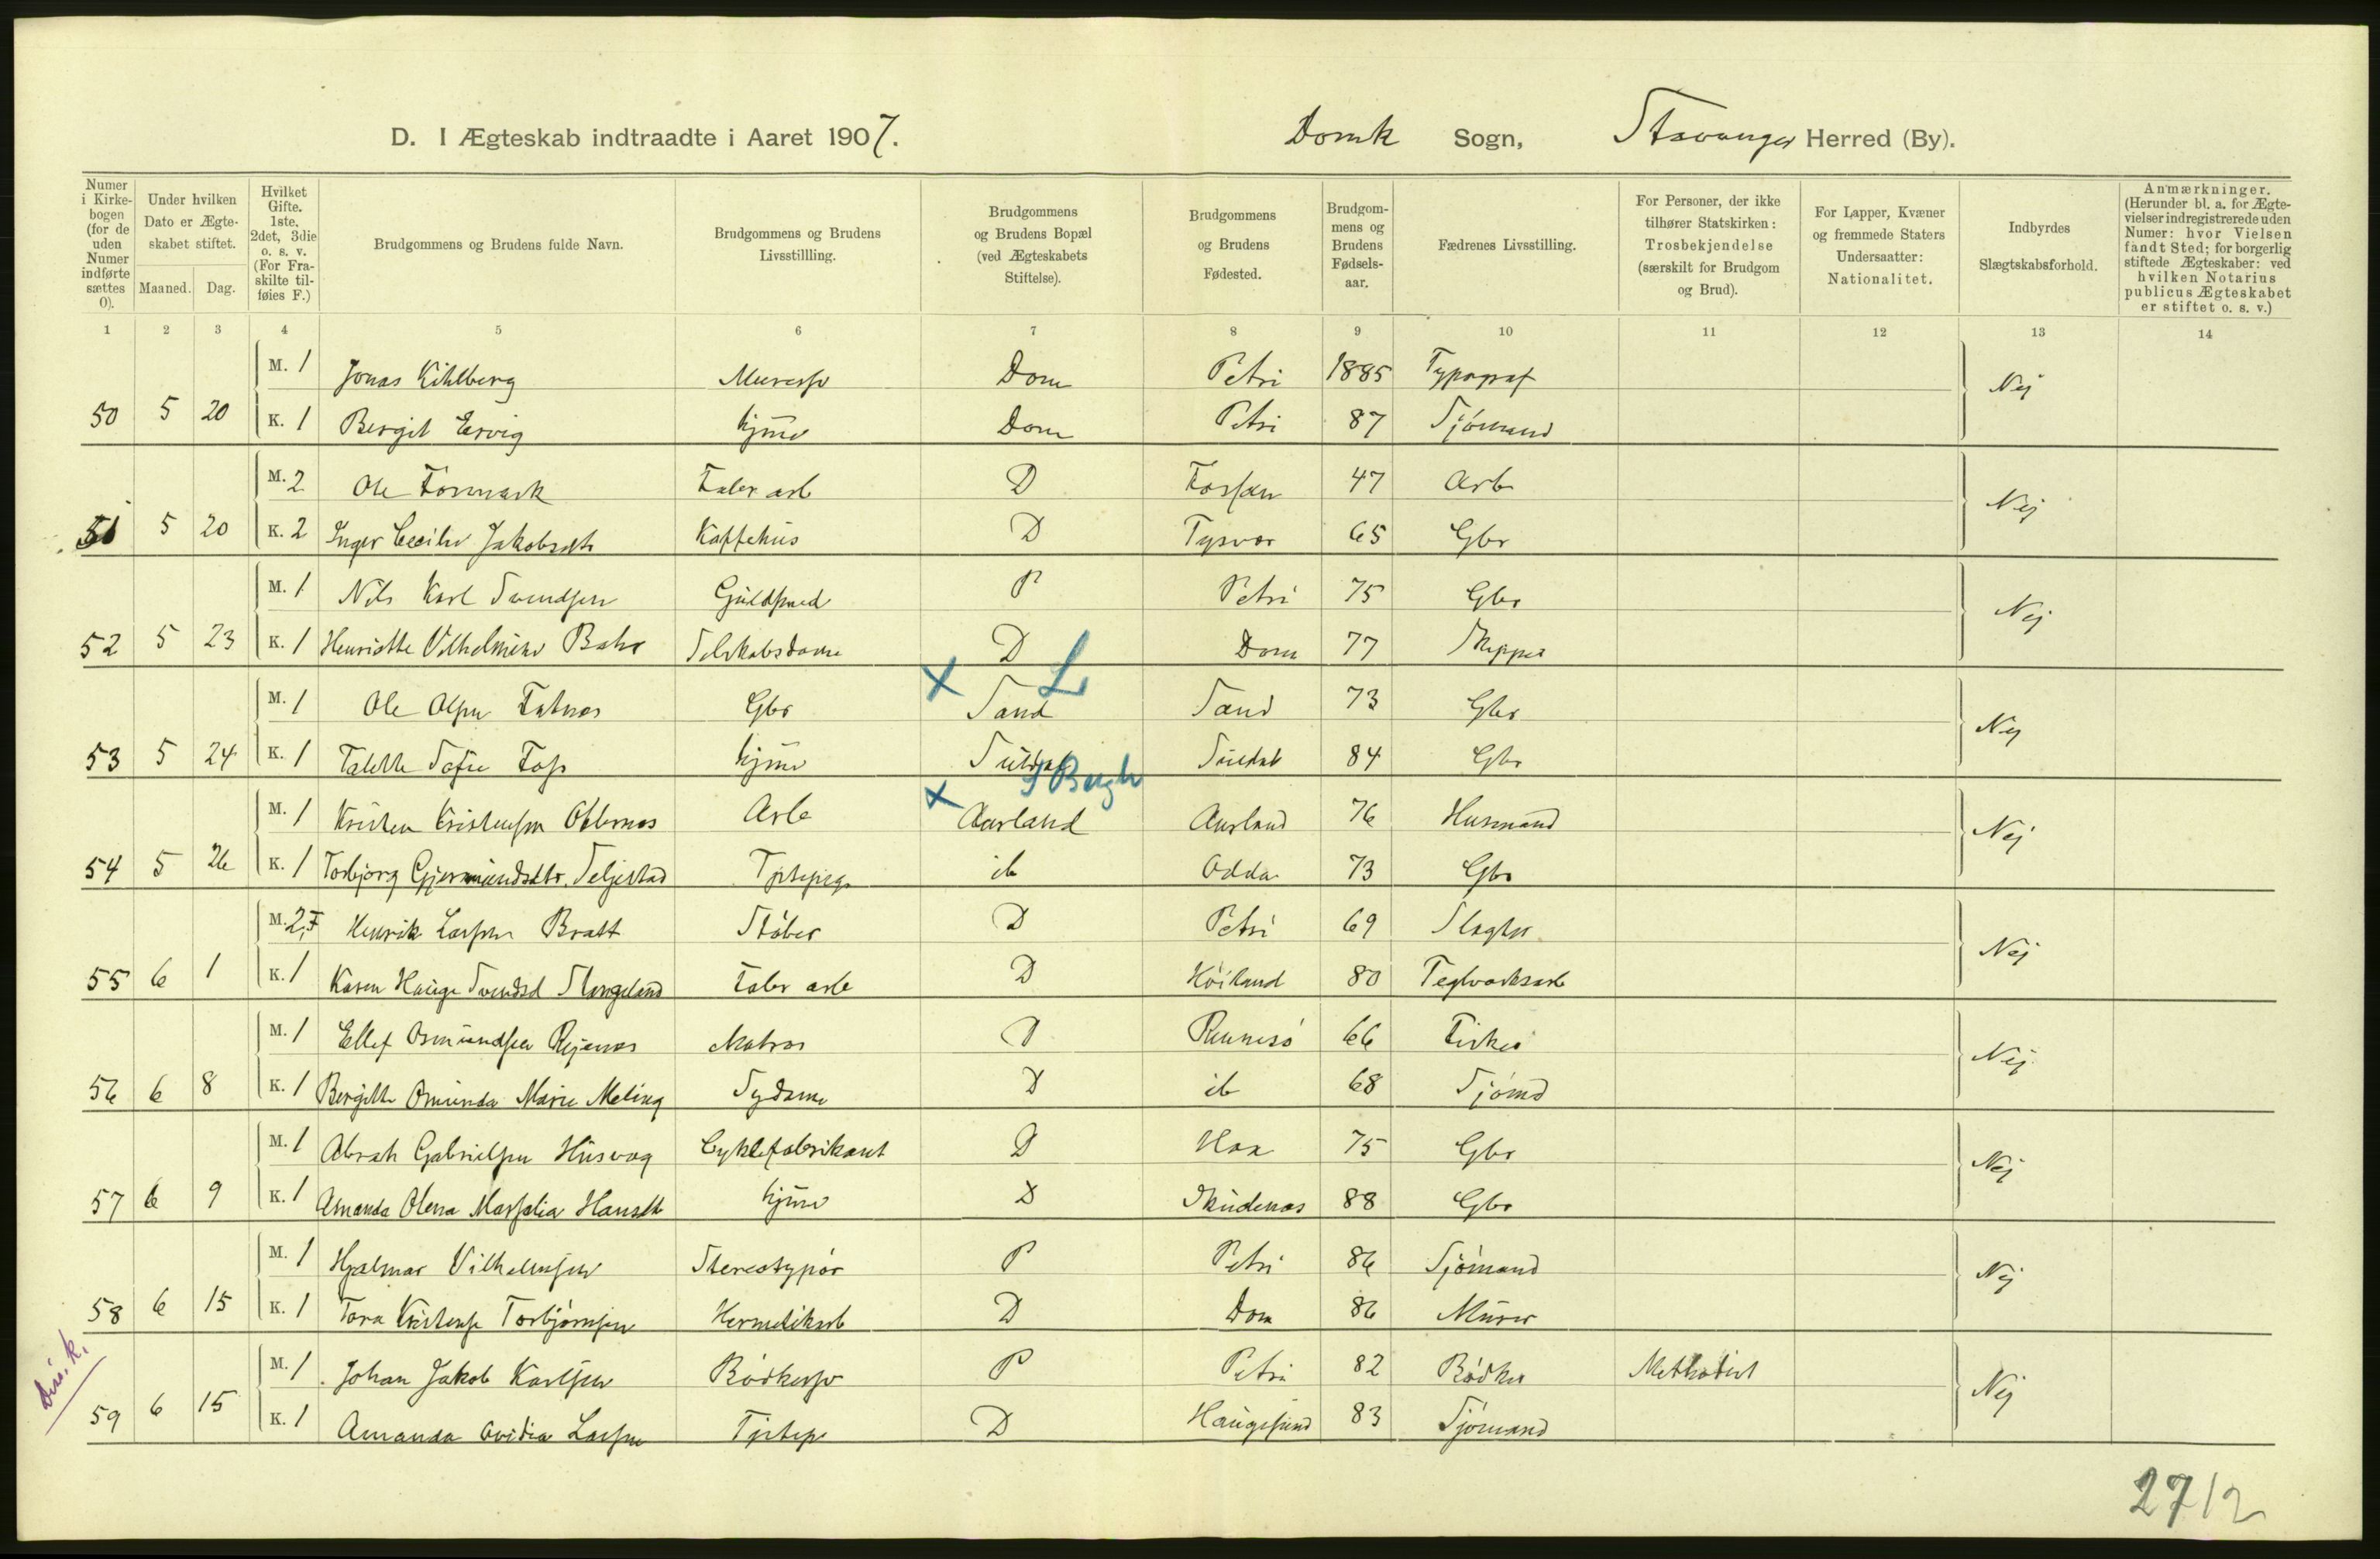 D. I Ægteskab indtraadte i Aaret 1907. Domk Sogn, Stavanger Herred (By).
Numer i Kirkebogen (for de uden Numer indførte sættes 0).
Under hvilken Dato er Ægteskabet stiftet.
Maaned. Dag.
Hvilket Gifte. 1ste, 2det, 3die o. s. v. (For Fraskilte tilføies F.)
Brudgommens og Brudens fulde Navn.
Brudgommens og Brudens Livsstillling.
Brudgommens og Brudens Bopæl (ved Ægteskabets Stiftelse).
Brudgommens og Brudens Fødested.
Brudgommens og Brudens Fødselsaar.
Fædrenes Livsstilling.
For Personer, der ikke tilhører Statskirken: Trosbekjendelse (særskilt for Brudgom og Brud).
For Lapper, Kvæner og fremmede Staters Undersaatter: Nationalitet.
Indbyrdes Slægtskabsforhold.
Anmærkninger. (Herunder bl. a. for Ægtevielser indregistrerede uden Numer: hvor Vielsen fandt Sted; for borgerlig stiftede Ægteskaber: ved hvilken Notarius publicus Ægteskabet er stiftet o. s. v.)
1 2 3 4 5 6 7 8 9 10 11 12 13 14
M. 1 Jonas Kihlberg Dom Petri 1885 Typograf Nej
50 5 20 K. 1 Bergit Ervig hjme Dom Petri 87 Sjömand
M. 2 Ole Fosmark Fabr arb D Forsan 47 Arb Nej
51 5 20 K. 2 Inger Cecilie Jakobsdtr Kaffehus D Tysvær 65 Gbr
M. 1 Nils Karl Svendsen Guldsmed P Petri 75 Gbr Nej
52 5 23 K. 1 Henriette Vilhelmine Selskabsdame D Dom 77 Skipper
L
M. 1 Ole Olsen Fatnes Gbr x Sand Sand 73 Gbr Nej
53 5 24 K. 1 Sofie hjme Suldal Suldal 84 Gbr
M. 1 Kristen Kristensen Arb x Aurland Aurland 76 Husmand Nej
54 5 26 K. 1 Torbjorg Gjermundsdtr. Seljestad ib Odda 73 Gbr
M. 2, F Henrik Larsen Bratt Stöber D Petri 69 Slagter Nej
55 6 1 K. 1 Karen Hauge Svendsd Stangeland Fabr arb D Höiland 80 Teglverksarb
M. 1 Ellef Osmundsen Matros D Rennesö 66 Fisker Nej
56 6 8 K. 1 Bergitte Omunda Marie Meling Sydame D ib 68 Sjömd
M. 1 Abrah Gabrielsen Husvæg Cyklefabrikant D 75 Gbr Nej
57 6 9 K. 1 Amanda Olena Marselia Hansdtr hjme D Skudenæs 88 Gbr
M. 1 Hjalmar Vilhelmsen Stereotypör P Petri 86 Sjömand Nej
58 6 15 K. 1 Tora Torbjörnsen Hermetikarb D Dom 86 Murer
M. 1 Johan Jakob Karlsen P Petri 82 Bödker Methodist Nej
59 6 15 K. 1 Amanda Ovidia Larsen D Haugesund 83 Sjömand
27/2